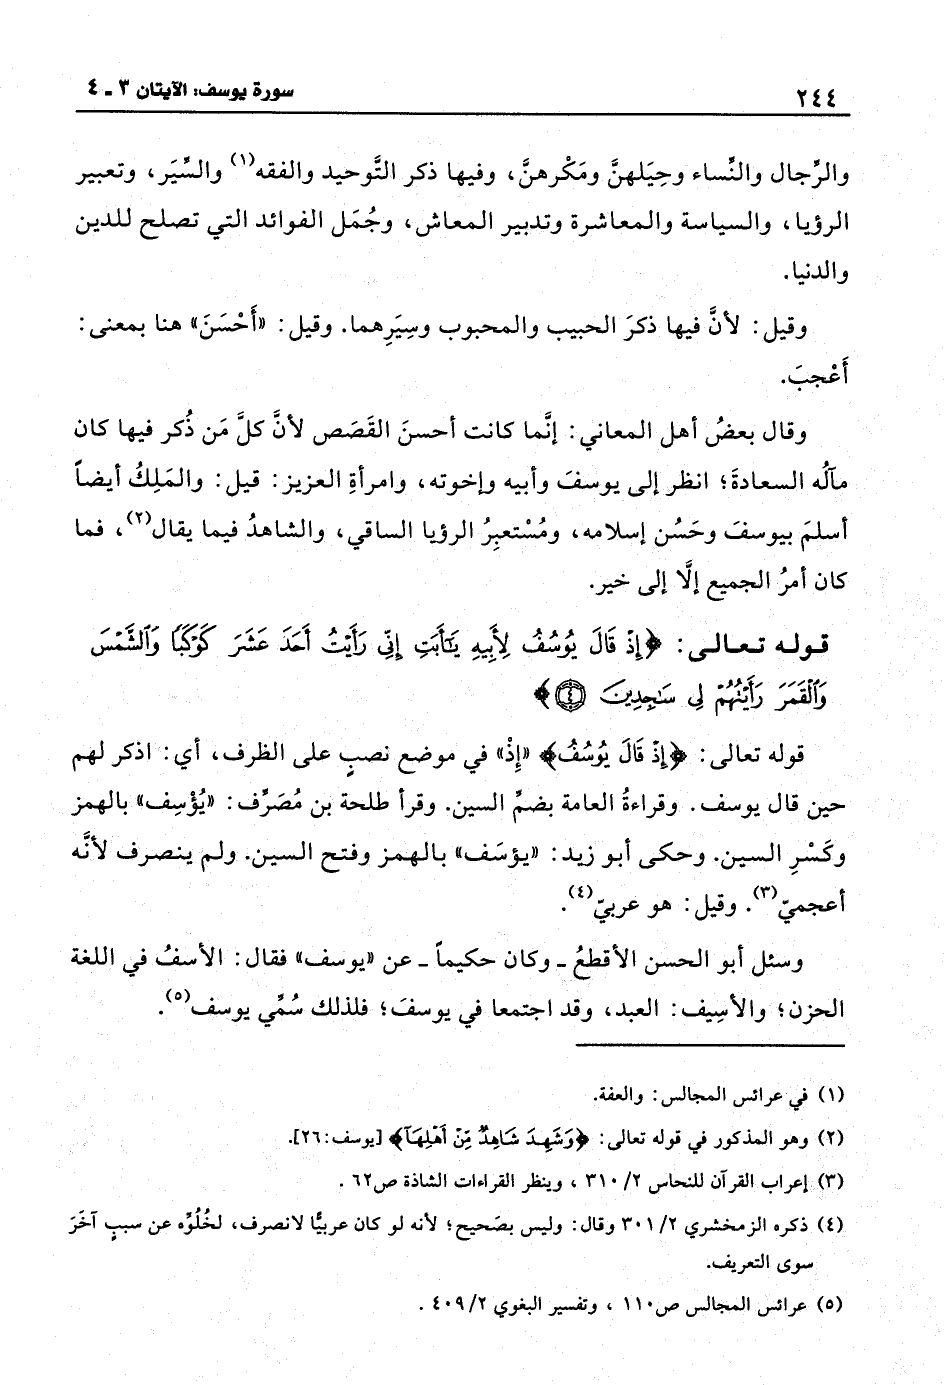 ٢٤٤
سورة يوسف: الآيتان ٣ ـ ٤
والرِّجال والنِّساء وحِيَلهنَّ ومَكْرهنَّ، وفيها ذكر التَّوحيد والفقه(١) والسِّيَر، وتعبير
الرؤيا، والسياسة والمعاشرة وتدبير المعاش، وجُمَل الفوائد التي تصلح للدين
والدنيا.
وقيل: لأنَّ فيها ذكرَ الحبيب والمحبوب وسِيَرِهما. وقيل: «أَحْسَنَ» هنا بمعنى:
أَعْجبَ.
وقال بعضُ أهل المعاني: إنَّما كانت أحسنَ القَصَص لأنَّ كلَّ مَن ذُكر فيها كان
مآلُه السعادةَ؛ انظر إلى يوسفَ وأبيه وإخوته، وامرأةِ العزيز: قيل: والمَلِكُ أيضاً
أسلمَ بيوسفَ وحَسُن إسلامه، ومُسْتعبِرُ الرؤيا الساقي، والشاهدُ فيما يقال(٢)، فما
كان أمرُ الجميع إلَّا إلى خير.
قوله تعالى: ﴿إِذْ قَالَ يُوسُفُ لِأَبِيهِ يَٰٓأَبَتِ إِنِّي رَأَيْتُ أَحَدَ عَشَرَ كَوْكَبًا وَٱلشَّمْسَ
وَٱلْقَمَرَ رَأَيْتُهُمْ لِي سَٰجِدِينَ ٤﴾
قوله تعالى: ﴿إِذْ قَالَ يُوسُفُ﴾ «إِذْ» في موضع نصبٍ على الظرف، أي: اذكر لهم
حين قال يوسف. وقراءةُ العامة بضمِّ السين. وقرأ طلحة بن مُصَرِّف: «يُؤْسِف» بالهمز
وكَسْرِ السين. وحكى أبو زيد: «يؤسَف» بالهمز وفتح السين. ولم ينصرف لأنَّه
أعجميّ(٣). وقيل: هو عربيّ(٤).
وسئل أبو الحسن الأقطعُ ـ وكان حكيماً ـ عن «يوسف» فقال: الأسفُ في اللغة
الحزن؛ والأسِيف: العبد، وقد اجتمعا في يوسفَ؛ فلذلك سُمِّي يوسف(٥).
(١) في عرائس المجالس: والعفة.
(٢) وهو المذكور في قوله تعالى: ﴿وَشَهِدَ شَاهِدٌ مِّنْ أَهْلِهَآ﴾ [يوسف: ٢٦].
(٣) إعراب القرآن للنحاس ٢/ ٣١٠ ، وينظر القراءات الشاذة ص٦٢ .
(٤) ذكره الزمخشري ٢/ ٣٠١ وقال: وليس بصحيح؛ لأنه لو كان عربيًّا لانصرف، لخُلُوِّه عن سببٍ آخَرَ
سوى التعريف.
(٥) عرائس المجالس ص١١٠ ، وتفسير البغوي ٢/ ٤٠٩ .